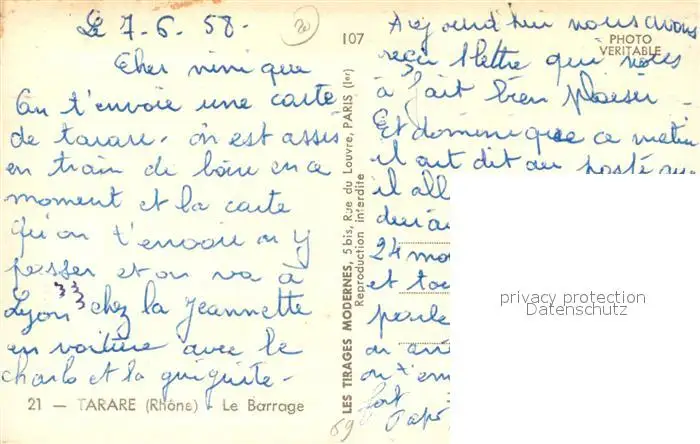 Le 7-6-58-
Cher ninique
On t'envoie une carte
de tarare. on est assis
en train de boire en ce
moment et la carte
qu'on t'envoie on y
passer et on va à
Lyon chez la Jeannette
en voiture avec le
charlo et la guiguite-
21 — TARARE (Rhône) - Le Barrage
LES TIRAGES MODERNES, 5 bis, Rue du Louvre, PARIS (Ier)
Reproduction interdite
107
PHOTO
VERITABLE
Aujourd'hui nous avons
reçu lettre qui nous
à fait bien plaisir
Et dominique ce matin
il ait dit au
il all
24
et tou
on
on t'em
fort
Papi
69
privacy protection
Datenschutz